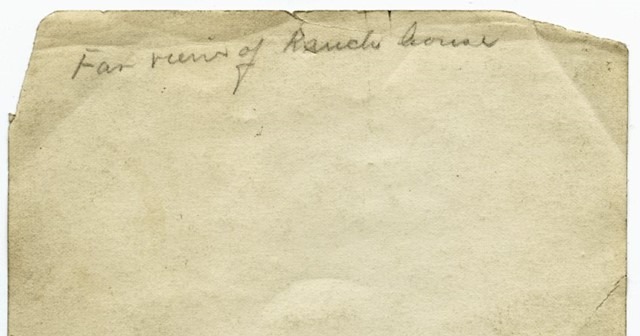 Far view of Ranch house